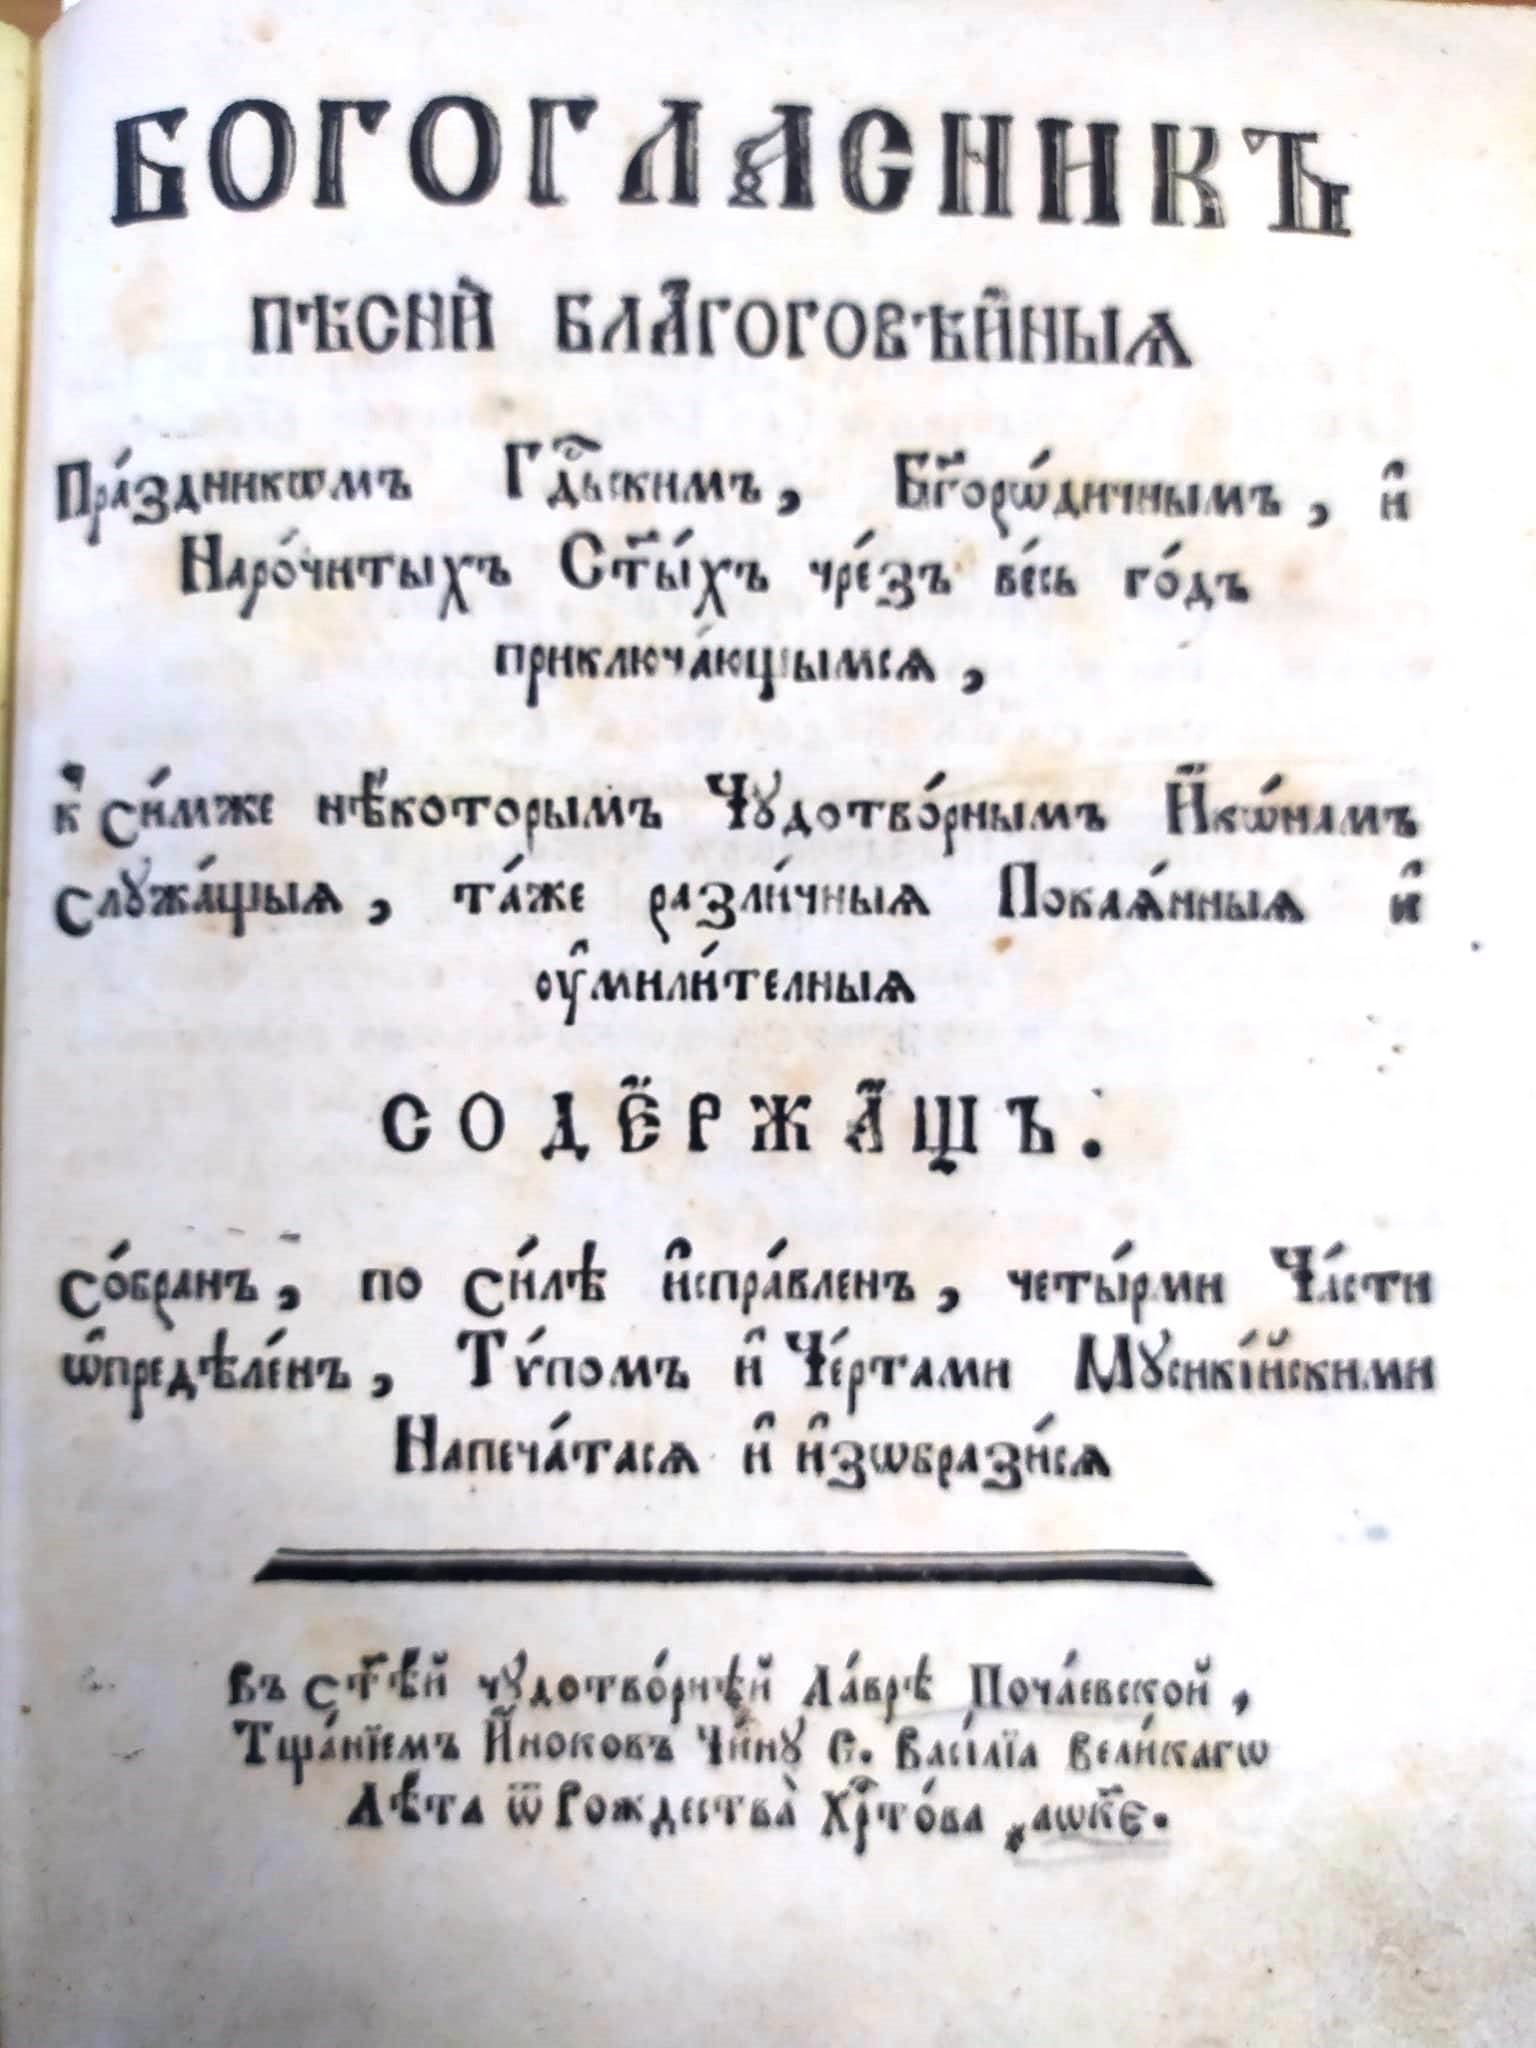 БОГОГЛАСНИКЪ
ПѢСНЍ БЛА҃ГОГОВѢ́ЙНЫѦ
Пра́здникѡмъ Гдⷭ҇ьскимъ, Бг҃оро́дичнымъ, и҆
Наро́читыхъ Ст҃ы́хъ чре́зъ ве́сь го́дъ
приключа́ющымсѧ,
к̾ си́мже нѣ́которымъ Чꙋдотво́рнымъ И҆кѡ́намъ
слꙋжа́щыѧ, та́же разли́чныѧ Покаѧ́нныѧ и҆
ᲂу҆мили́телныѧ
СОДЕ́РЖА́ЩЪ.
со́бранъ, по си́лѣ и҆спра́вленъ, четы́рми Ча́сти
ѡ҆предѣле́нъ, Тѵ́помъ и҆ Че́ртами Мꙋсикі́йскими
Напеча́тасѧ и҆ и҆зѡбрази́сѧ
въ ст҃ѣ́й чꙋдотво́рнѣй Ла́врѣ Поча́евской,
Тща́нїемъ И҆́ноковъ Чи́нꙋ С. Васі́лїа вели́кагѡ
Лѣ́та ѿ Рождества̀ Хрⷭ҇то́ва ҂аѡк҃є.